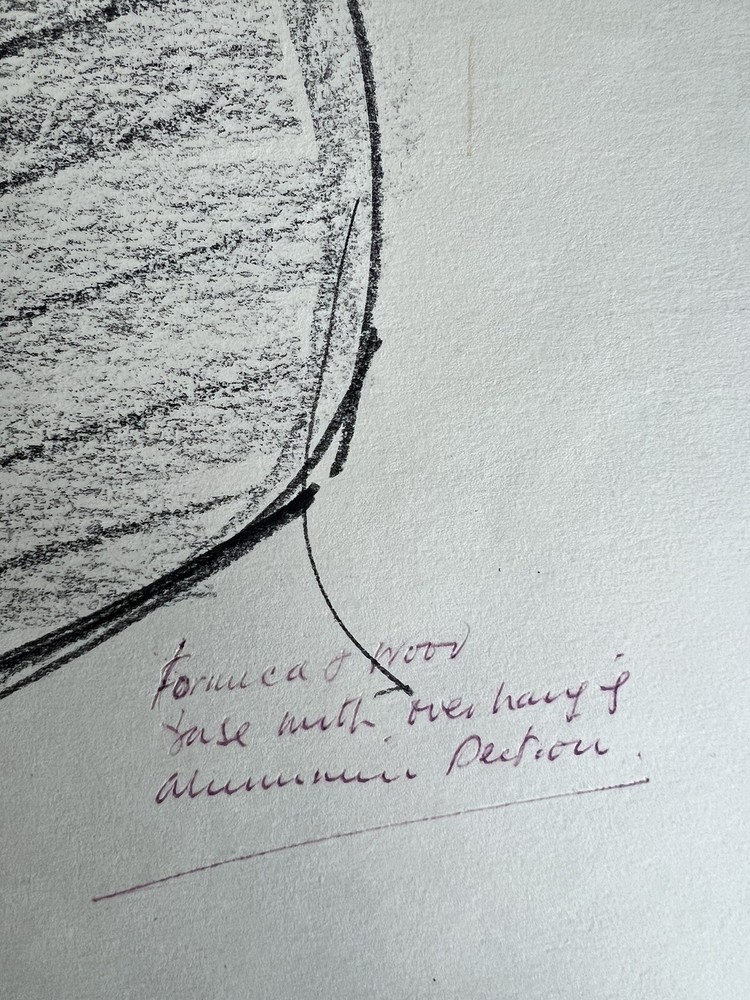 Formica & wood
base with overhanging
aluminium section.